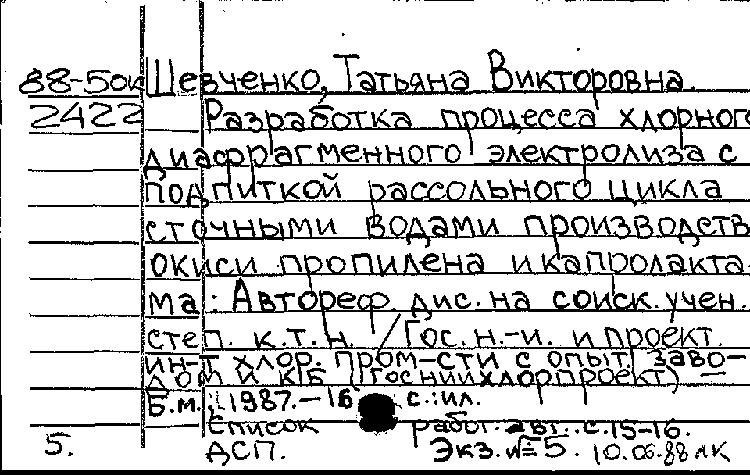 88-50к Шевченко, Татьяна Викторовна.
2422 Разработка процесса хлорного
диафрагменного электролиза с
подпиткой рассольного цикла
сточными водами производств
окиси пропилена и капролакта-
ма: Автореф. дис. на соиск. учен.
степ. к.т.н. / Гос. н.-и. и проект.
ин-т хлор. пром-сти с опыт. заво-
дом и КБ (Госниихлорпроект) –
Б.м.; 1987. – 16 с.: ил.
Список работ авт.: с. 15-16.
5. ДСП. Экз. №5. 10.06.88 лк